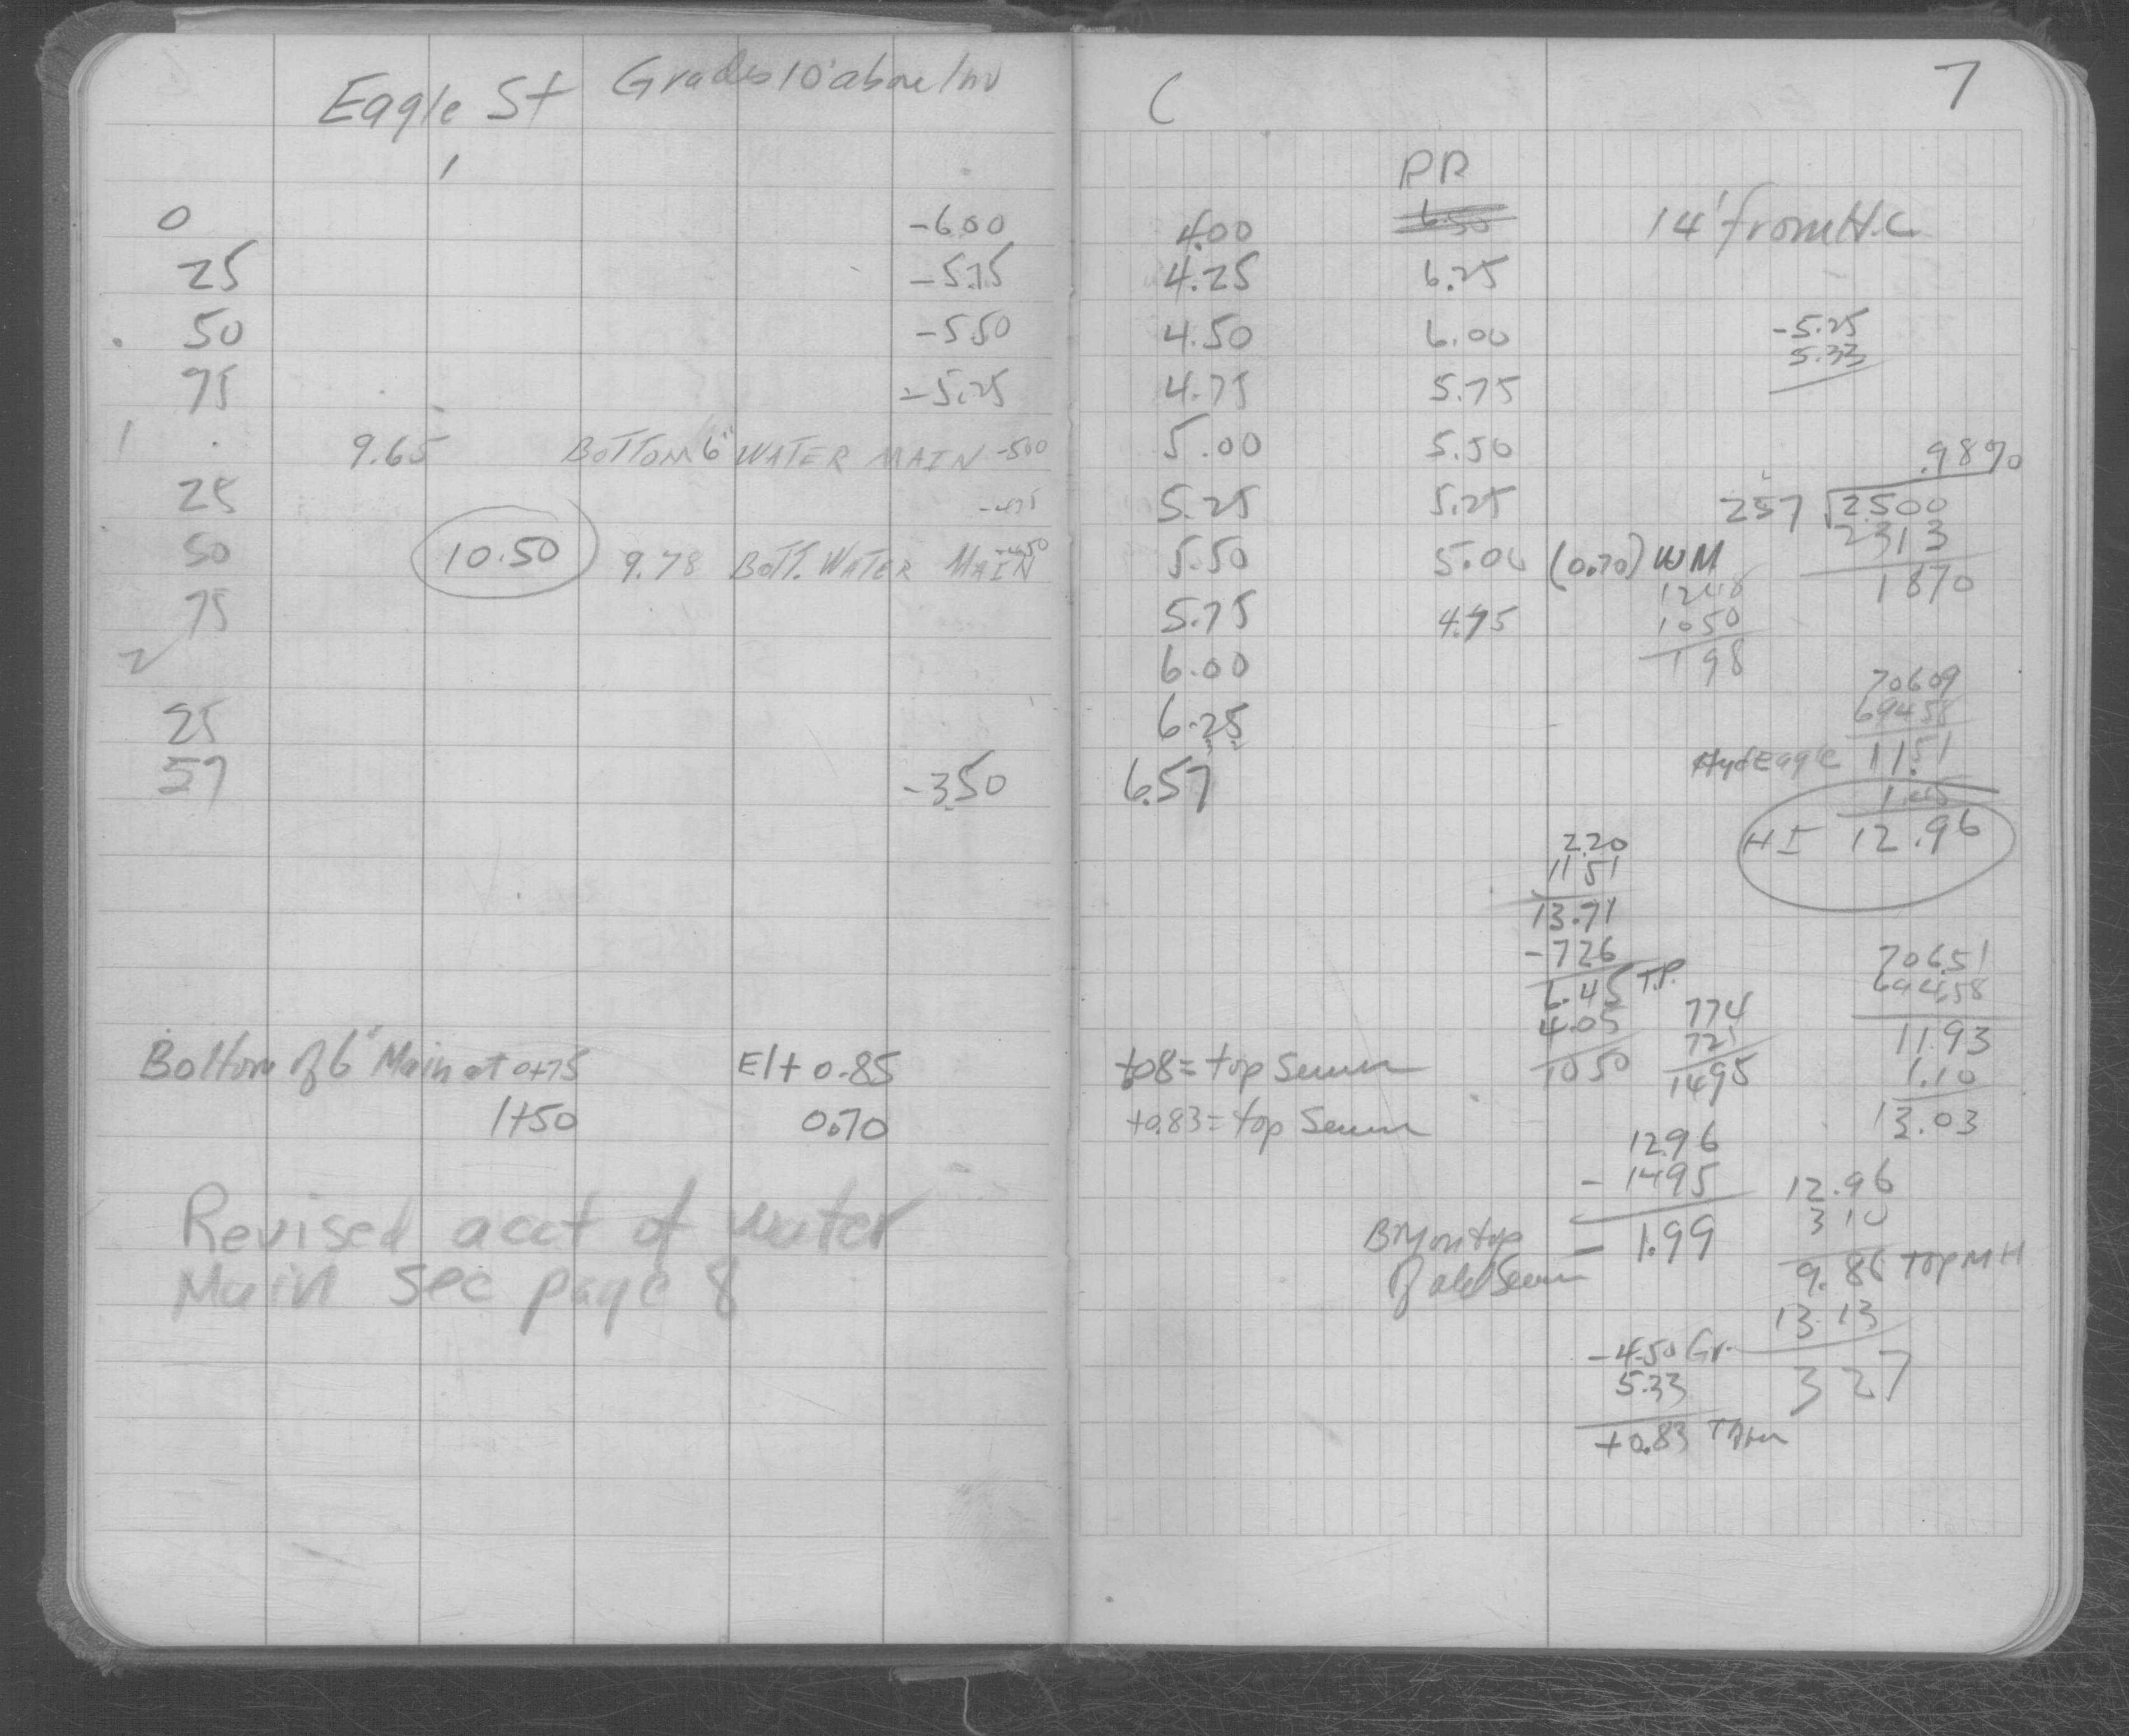 Eagle St Grades 10' above Inv
0 -6.00
25 -5.75
50 -5.50
75 -5.25
1 9.65 BOTTOM 6" WATER MAIN -5.00
25 -4.75
50 10.50 9.78 BOTT. WATER MAIN -4.50
75
2
25
57 -3.50
Bottom of 6" Main at 0+75 El + 0.85
1+50 0.70
Revised acct of water
Main see page 8
C 7
RR
4.00 6.50 14' from H.C
4.25 6.25
4.50 6.00 -5.25
5.33
4.75 5.75
5.00 5.50
5.25 5.25
5.50 5.00 (0.70) WM
5.75 4.75
6.00
6.25
6.57
.98%
257 2.500
2313
1870
1248
1050
198
706.09
694.58
Hyd Eagle 11.51
1.45
HI 12.96
2.20
11 51
13.71
-7.26
6.45 T.P.
4.05
10 50
774
721
1495
706.51
694.58
11.93
1.10
13.03
+08 = top Sewer
+0.83 = top Sewer
12.96
- 1495
- 1.99
BM on top
of old Sewer
12.96
3 10
9.86 top MH
13.13
3 27
-4.50 Gr.
5.33
+0.83